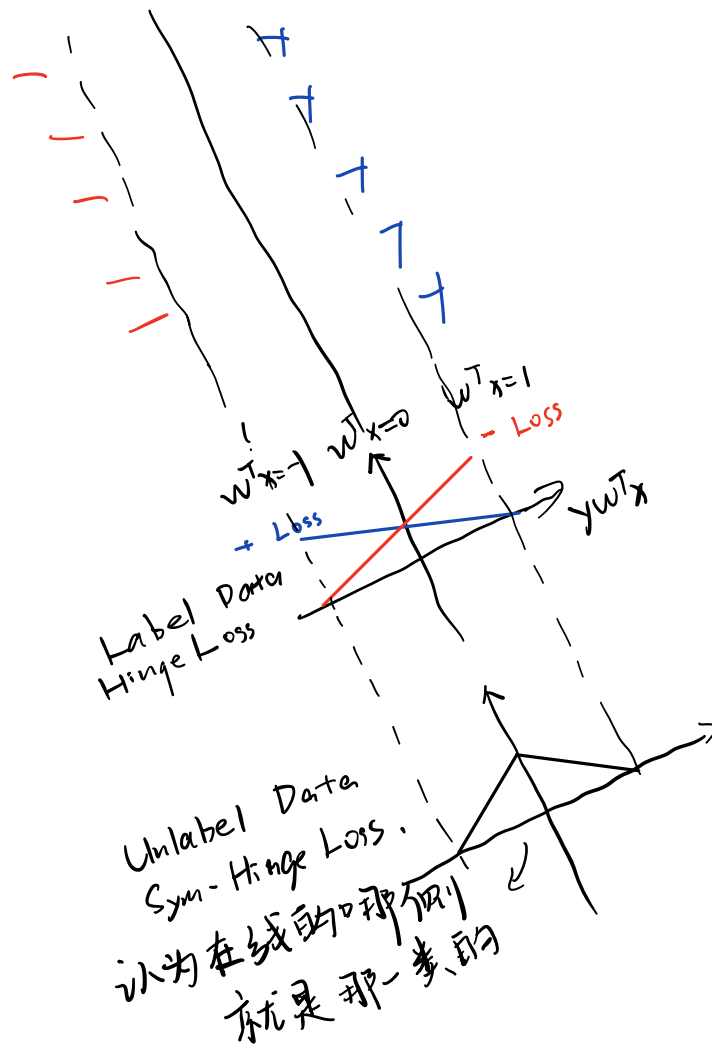 wᵀx=1
wᵀx=0
wᵀx=-1
- Loss
+ Loss
ywᵀx
Label Data
Hinge Loss
Unlabel Data
Sym-Hinge Loss.
认为在线的哪侧
就是那一类的